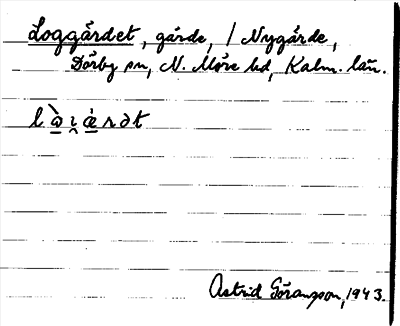 Loggärdet, gärde, / Nygärde,
Dörby sn, N. Möre hd, Kalm. län.
l ò̱ ɩ̯ æ̱̇ r ə t
Astrid Göransson, 1943.